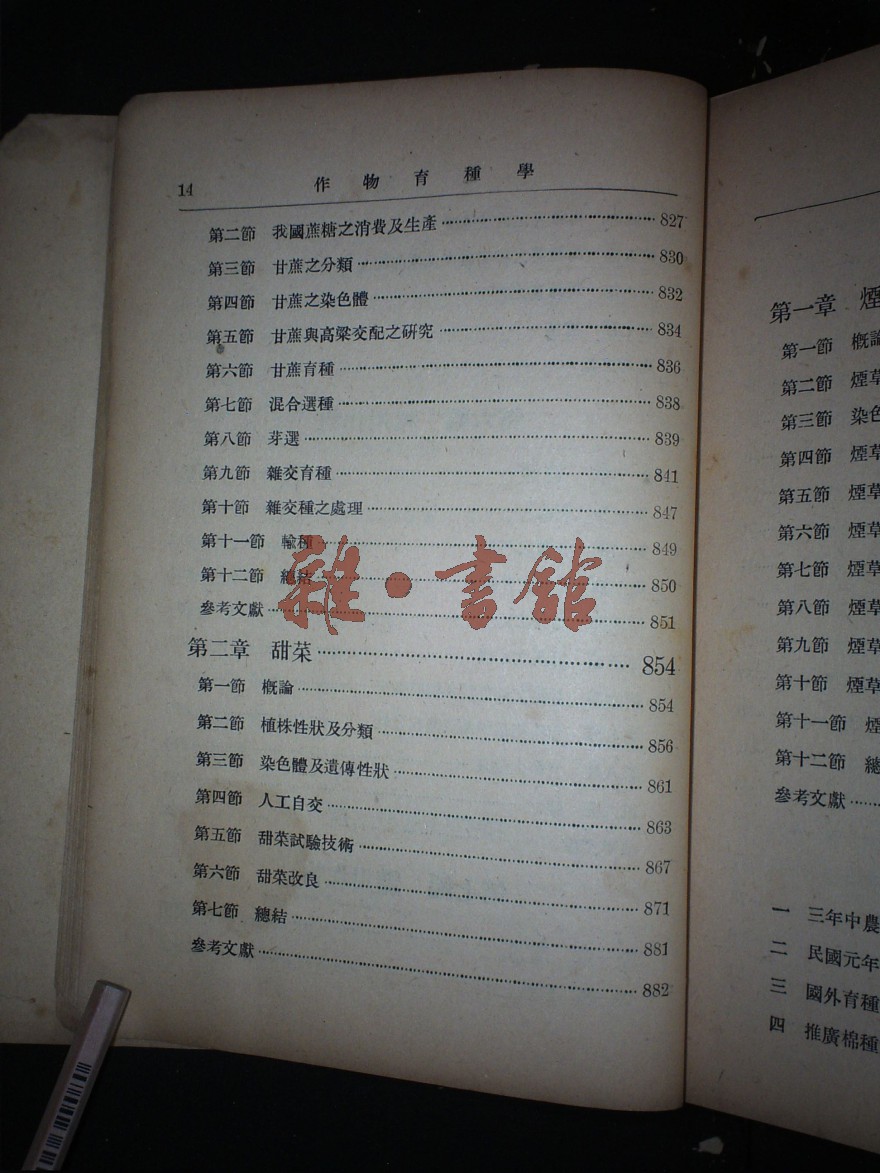 14 作物育種學
第二節 我國蔗糖之消費及生產 827
第三節 甘蔗之分類 830
第四節 甘蔗之染色體 832
第五節 甘蔗與高粱交配之研究 834
第六節 甘蔗育種 836
第七節 混合選種 838
第八節 芽選 839
第九節 雜交育種 841
第十節 雜交種之處理 847
第十一節 輸種 849
第十二節 總結 850
參考文獻 851
第二章 甜菜 854
第一節 概論 854
第二節 植株性狀及分類 856
第三節 染色體及遺傳性狀 861
第四節 人工自交 863
第五節 甜菜試驗技術 867
第六節 甜菜改良 871
第七節 總結 881
參考文獻 882
雜·書館
第一章 煙
第一節 概論
第二節 煙草
第三節 染色
第四節 煙草
第五節 煙草
第六節 煙草
第七節 煙草
第八節 煙草
第九節 煙草
第十節 煙草
第十一節 煙
第十二節 總
參考文獻
一 三年中農
二 民國元年
三 國外育種
四 推廣棉種